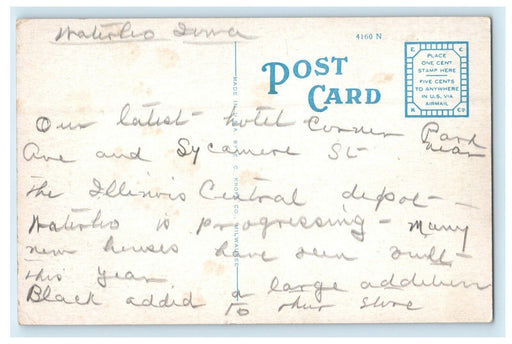 Waterloo Iowa
4160 N
POST
CARD
E C
PLACE
ONE CENT
STAMP HERE
FIVE CENTS
TO ANYWHERE
IN U.S. VIA
AIRMAIL
K CO
Our latest hotel Corner Park
Ave and Sycamore St near
the Illinois Central depot
Waterloo is progressing - Many
new houses have been built
this year
Black added a large addition
to their store
MADE IN BY E. C. KROPP CO., MILWAUKEE